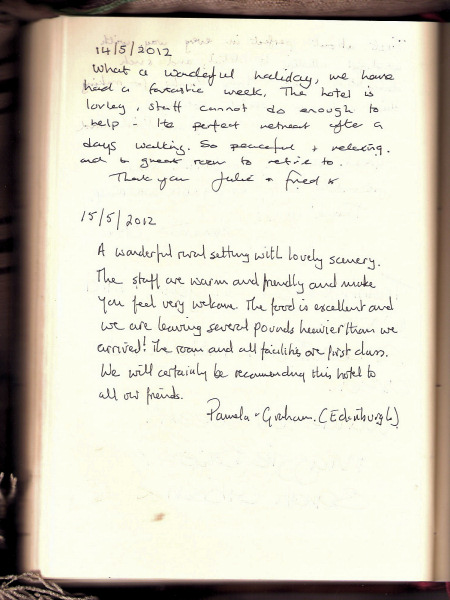 14/5/2012
What a wonderful holiday, we have
had a fantastic week. The hotel is
lovley, staff cannot do enough to
help - Its perfect retreat after a
days walking. So peaceful + relaxing.
and a great room to retire to.
Thank you Julie + Fred x
15/5/2012
A wonderful rural setting with lovely scenery.
The staff are warm and friendly and make
you feel very welcome. The food is excellent and
we are leaving several pounds heavier than we
arrived! The room and all facilities are first class.
We will certainly be recommending this hotel to
all our friends.
Pamela + Graham. (Edinburgh)